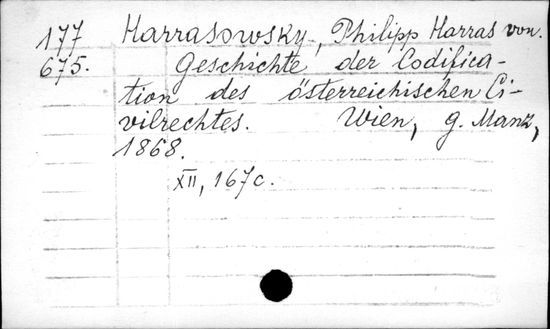 177 Harrasowsky, Philipp Harras von.
675. Geschichte der Codifica-
tion des österreichischen Ci-
vilrechtes. Wien, G. Manz,
1868.
XII, 167 c.